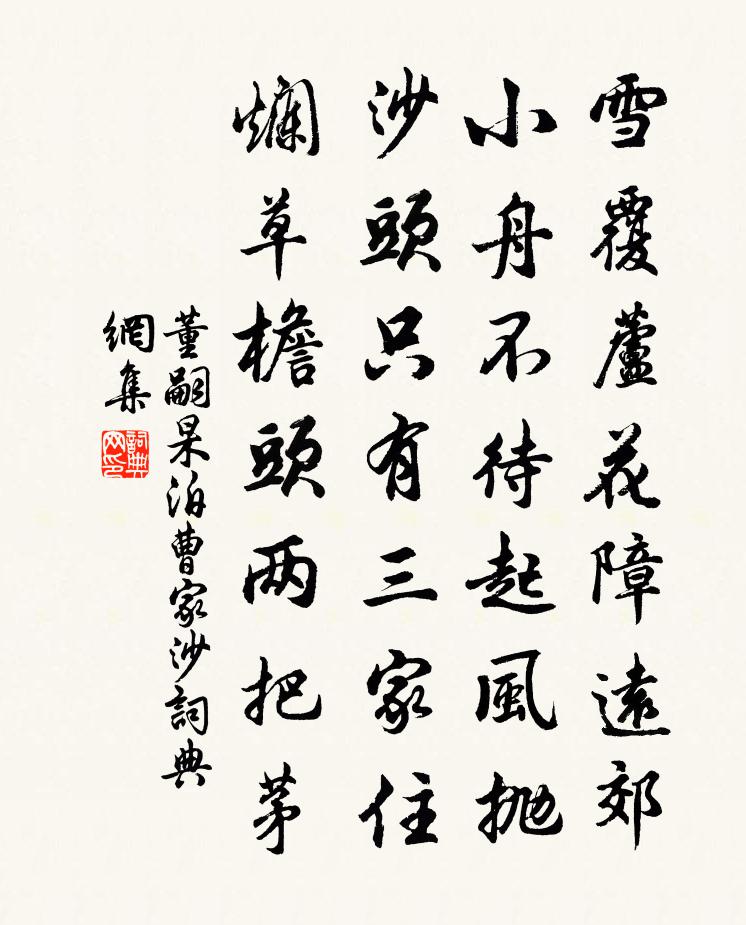 雪覆蘆花障遠郊
小舟不待起風抛
沙頭只有三家住
爛草檐頭两把茅
董嗣杲泊曹家沙詞典
網集
詞典网印